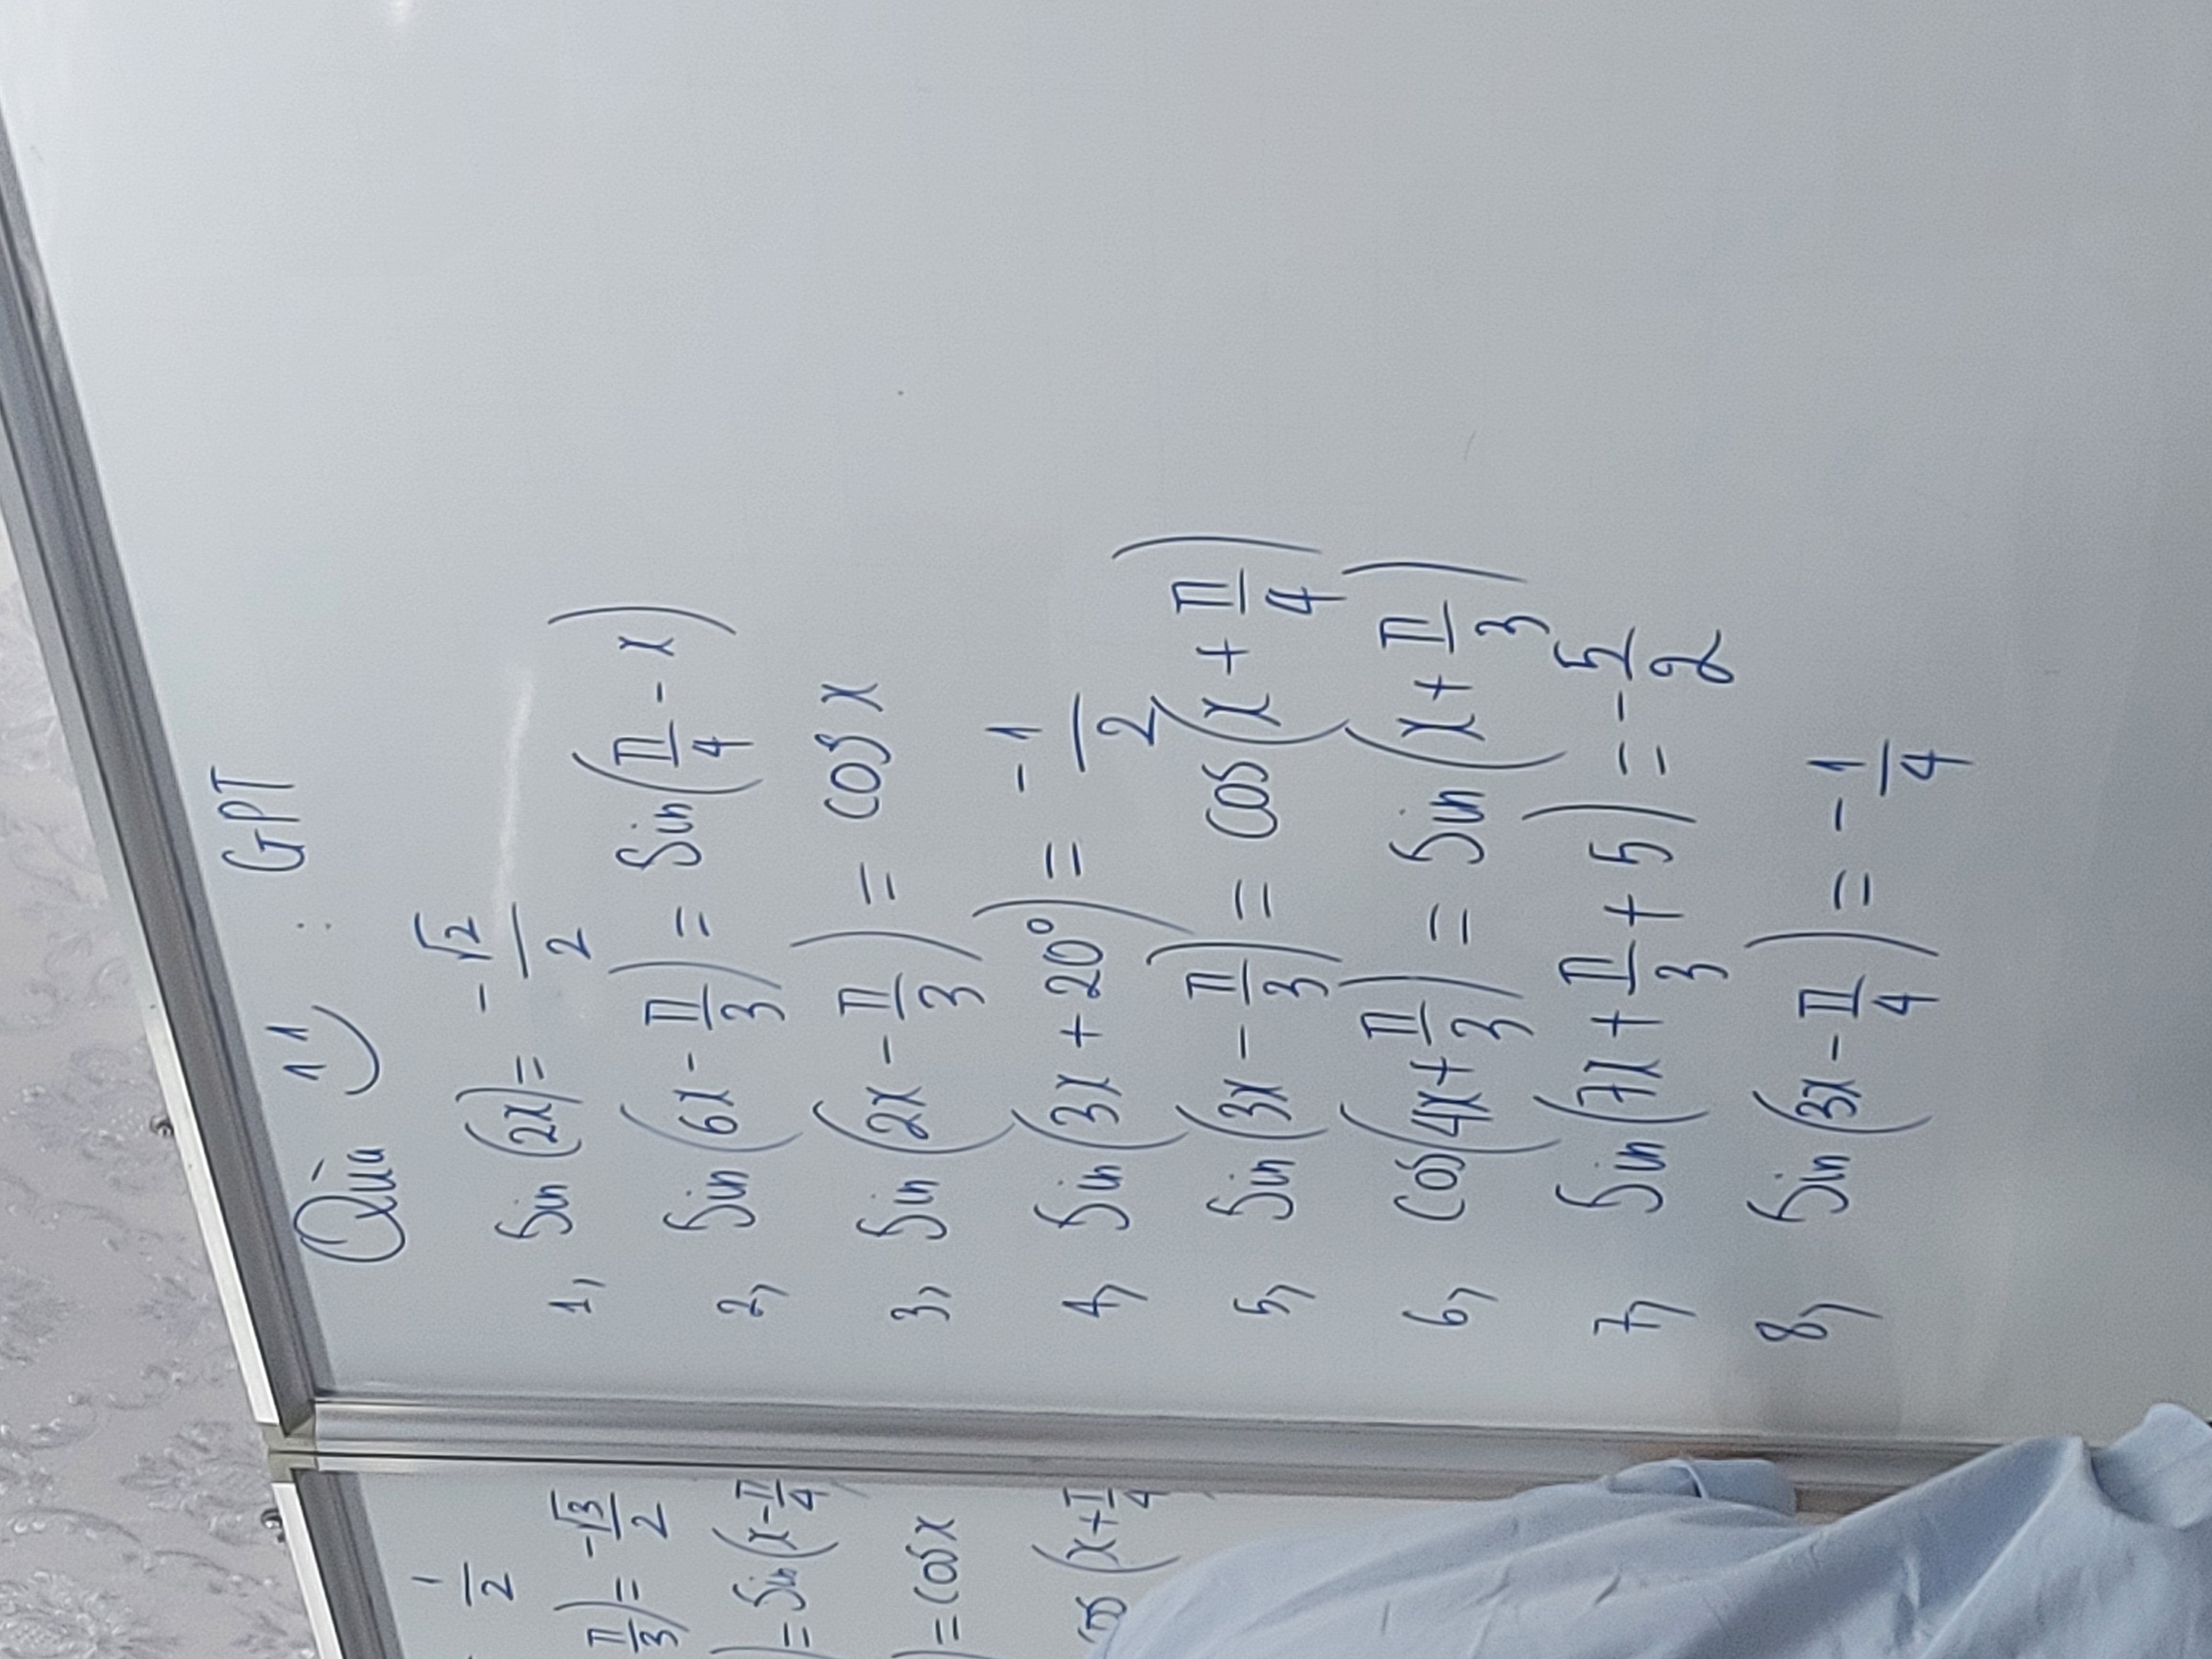 Quà :) GPT
1, Sin (2x) = -√2/2
2, Sin (6x - π/3) = Sin(π/4 - x)
3, Sin (2x - π/3) = cos x
4, Sin (3x + 20°) = -1/2
5, Sin (3x - π/3) = cos (x + π/4)
6, Cos(4x + π/3) = Sin (x + π/3)
7, Sin (7x + π/3 + 5) = -5/2
8, Sin (3x - π/4) = -1/4
1/2
π/3) = -√3/2
) = Sin(x - π/4
) = cos x
(x +